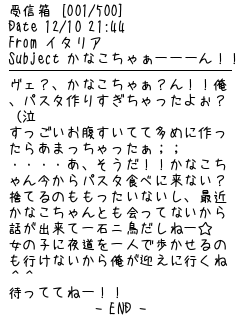 受信箱 [001/500]
Date 12/10 21:44
From イタリア
Subject かなこちゃぁーーーん！！
ヴェ？、かなこちゃぁ？ん！！俺
、パスタ作りすぎちゃったよぉ？
（泣
すっごいお腹すいてて多めに作っ
たらあまっちゃったぁ；；
・・・・あ、そうだ！！かなこち
ゃん今からパスタ食べに来ない？
捨てるのももったいないし、最近
かなこちゃんとも会ってないから
話が出来て一石二鳥だしねー☆
女の子に夜道を一人で歩かせるの
も行けないから俺が迎えに行くね
^ ^
待っててねー！！
- END -